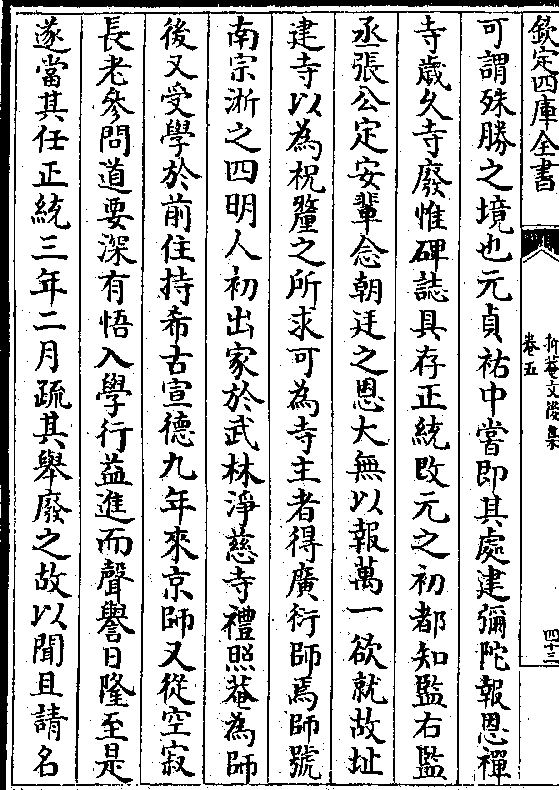 欽定四庫全書
卷五
四十三
可謂殊勝之境也元貞祐中嘗即其處建彌陀報恩禪
寺歲久寺廢惟碑誌具存正統改元之初都知監右監
丞張公定安輩念朝廷之恩大無以報萬一欲就故址
建寺以為祝釐之所求可為寺主者得廣衍師焉師號
南宗浙之四明人初出家於武林淨慈寺禮照菴為師
後又受學於前住持希古宣德九年來京師又從空寂
長老參問道要深有悟入學行益進而聲譽日隆至是
遂當其任正統三年二月疏其舉廢之故以聞且請名